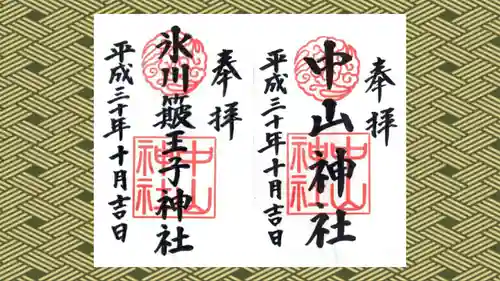 奉拝
中山神社
平成三十年十月吉日
中山
神社
奉拝
氷川簸王子神社
平成三十年十月吉日
中山
神社